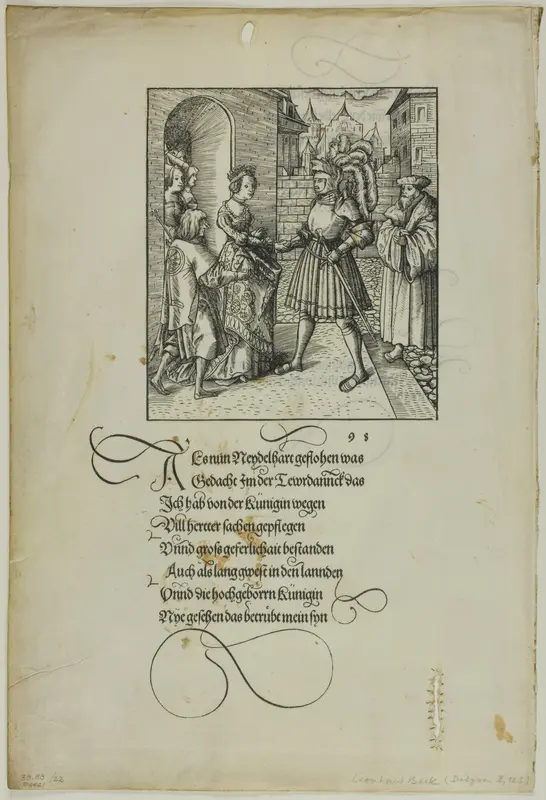 98
Als nun Neydelhart geflohen was
Gedacht Im der Tewrdannck das
Ich hab von der Künigin wegen
Vill hertter sachen gepflegen
Vnnd groß geferlichait bestanden
Auch als lang gwest in den lannden
Vnnd die hochgeborrn Künigin
Nye gesehen das betrübt mein syn
38.88 /22
Leonhard Beck (Dodgson II,